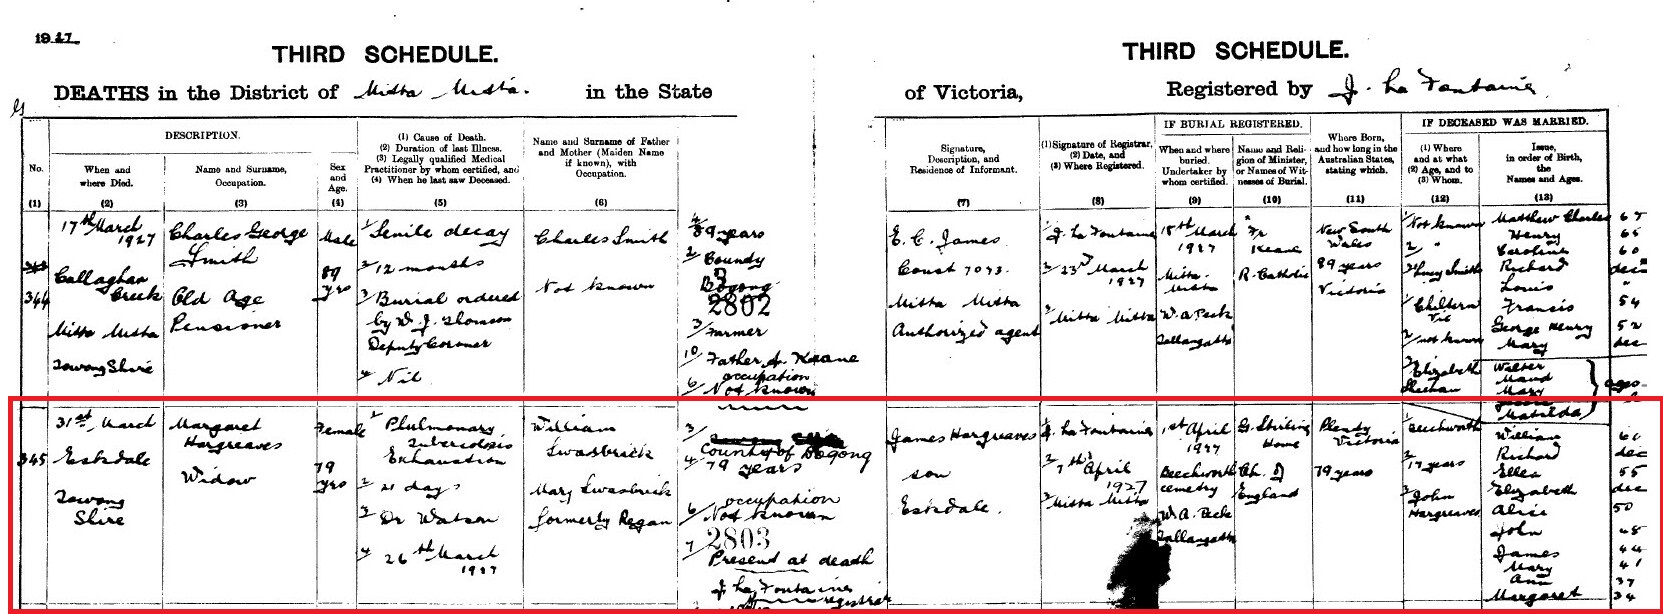 1927
THIRD SCHEDULE.
THIRD SCHEDULE.
DEATHS in the District of Mitta Mitta. in the State
of Victoria, Registered by J. La Fontaine
DESCRIPTION.
No.
(1)
When and
where Died.
(2)
Name and Surname,
Occupation.
(3)
Sex
and
Age.
(4)
(1) Cause of Death.
(2) Duration of last Illness.
(3) Legally qualified Medical
Practitioner by whom certified, and
(4) When he last saw Deceased.
(5)
Name and Surname of Father
and Mother (Maiden Name
if known), with
Occupation.
(6)
Signature,
Description, and
Residence of Informant.
(7)
(1) Signature of Registrar,
(2) Date, and
(3) Where Registered.
(8)
IF BURIAL REGISTERED.
When and where
buried.
Undertaker by
whom certified.
(9)
Name and Reli-
gion of Minister,
or Names of Wit-
nesses of Burial.
(10)
Where Born,
and how long in the
Australian States,
stating which.
(11)
IF DECEASED WAS MARRIED.
(1) Where
and at what
(2) Age, and to
(3) Whom.
(12)
Issue,
in order of Birth,
the
Names and Ages.
(13)
344
17th March
1927
Callaghan
Creek
Mitta Mitta
Towong Shire
Charles George
Smith
Old Age
Pensioner
Male
89
yrs
1/ Senile decay
2/ 12 months
3/ Burial ordered
by W. J. Thomson
Deputy Coroner
4/ Nil
Charles Smith
Not known
4/ 89 years
2/ County
Bogong
2802
3/ Farmer
10/ Father J. Keane
occupation
6/ Not known
E. C. James
Const 7073.
Mitta Mitta
Authorized agent
1/ J. La Fontaine
2/ 23rd March
1927
3/ Mitta Mitta
18th March
1927
Mitta
Mitta
W. A. Peck
Tallangatta
Fr
Keane
R. Catholic
New South
Wales
89 years
Victoria
1/ Not known
2/ "
3/ Smith
1/ Chiltern
Vic
2/ not known
3/ Elizabeth
Sheehan
Matthew Charles 67
Henry 65
Caroline 60
Richard dec
Louis "
Francis 54
George Henry 52
Mary dec
Walter
Maud
Mary
Matilda
ages
345
31st March
Eskdale
Towong
Shire
Margaret
Hargreaves
Widow
Female
79
yrs
1/ Pulmonary
tuberculosis
Exhaustion
2/ 21 days
3/ Dr Watson
4/ 26th March
1927
William
Swasbrick
Mary Swasbrick
formerly Regan
3/
County of Bogong
4/ 79 years
occupation
6/ Not known
2803
7/ Present at death
J. La Fontaine
registrar
James Hargreaves
son
Eskdale.
1/ J. La Fontaine
2/ 7th April
1927
3/ Mitta Mitta
1st April
1927
Beechworth
cemetery
W. A. Peck
Tallangatta
G. Stirling
Home
Ch. of
England
Plenty
Victoria
79 years
1/ Beechworth
2/ 17 years
3/ John
Hargreaves
William 60
Richard dec
Ellen 55
Elizabeth dec
Alice 50
John 48
James 44
Mary 41
Ann 37
Margaret 34